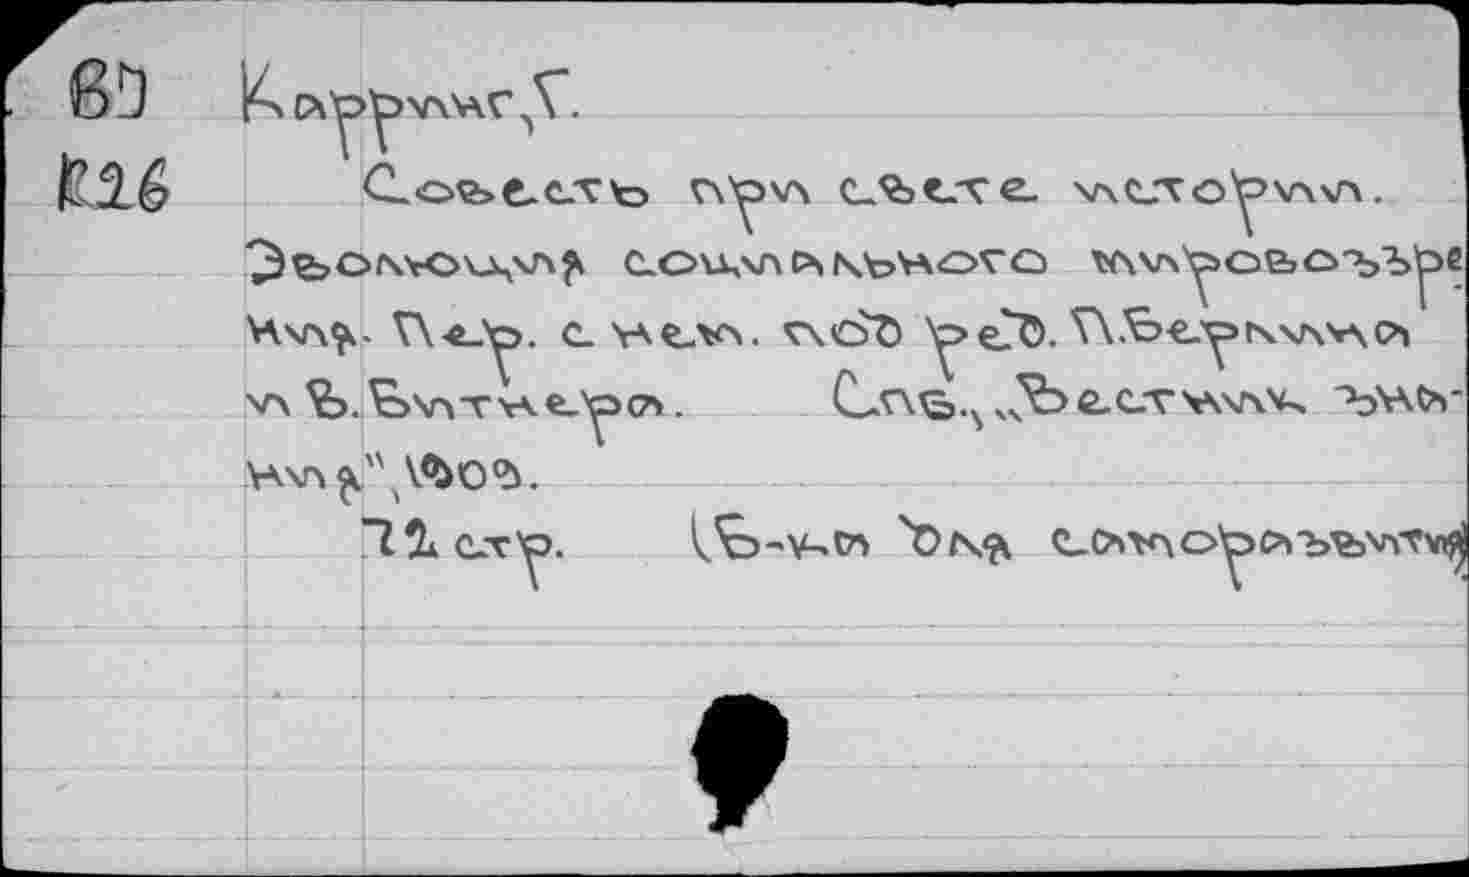 87 Карринг,Г.
К26 Совесть при свете истории.
Эволюция социального мировоззре
ния. Пер. с нем. под ред. П.Берлина
и В.Битнера. Спб.,„Вестник зна-
ния",1909.
72 стр. (Б-ка для саморазвития